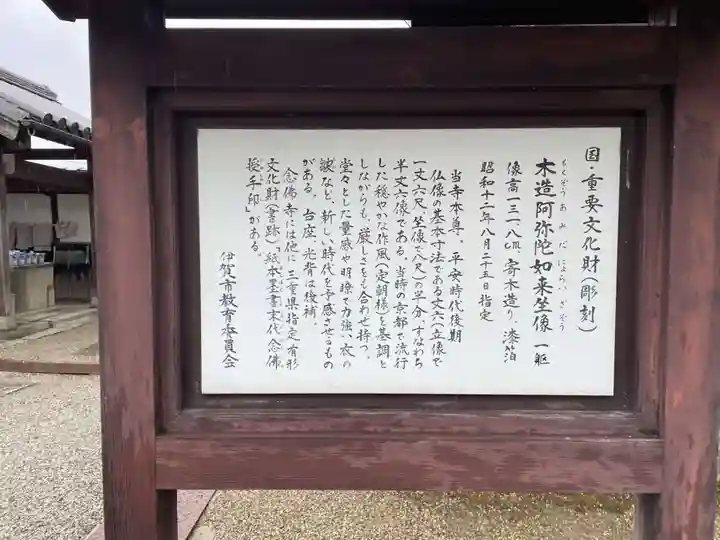 国・重要文化財（彫刻）
もくぞう あ み だ にょらい ざぞう
木造阿弥陀如来坐像 一軀
像高一三一・八㎝、寄木造り、漆箔
昭和十二年八月二十五日指定
当寺本尊、平安時代後期
仏像の基本寸法である丈六（立像で
一丈六尺、坐像で八尺）の半分、すなわち
半丈六像である。当時の京都で流行
した穏やかな作風（定朝様）を基調と
しながらも、厳しさをも合わせ持つ。
堂々とした量感や明瞭で力強い衣の
皺など、新しい時代を予感させるもの
がある。台座、光背は後補。
念佛寺には他に三重県指定有形
文化財（書跡）「紙本墨書末代念佛
授手印」がある。
伊賀市教育委員会